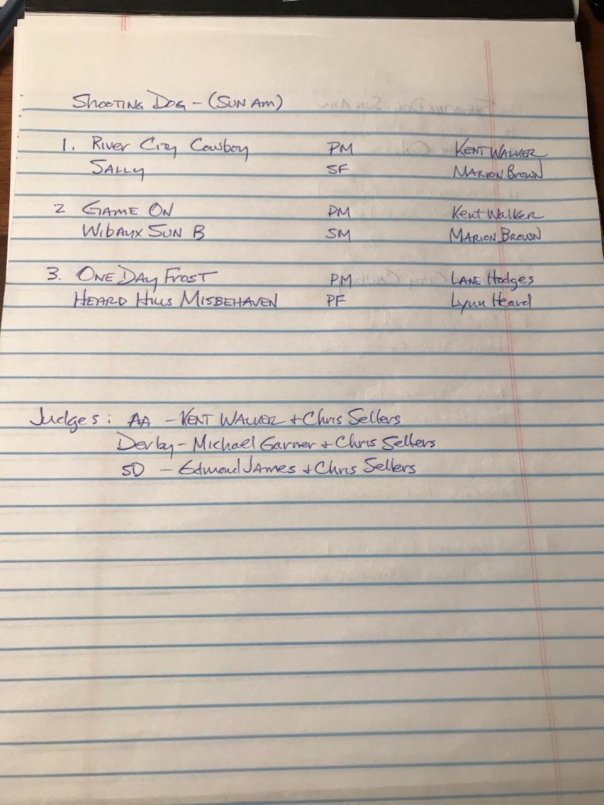 Shooting Dog - (Sun Am)
1. River City Cowboy PM Kent Walker
Sally SF Marion Brown
2 Game On PM Kent Walker
Wibaux Sun B SM Marion Brown
3. One Day Frost PM Lane Hodges
Heard Hills Misbehaven PF Lynn Heard
Judges: AA - Kent Walker + Chris Sellers
Derby - Michael Garner + Chris Sellers
SD - Edmund James + Chris Sellers